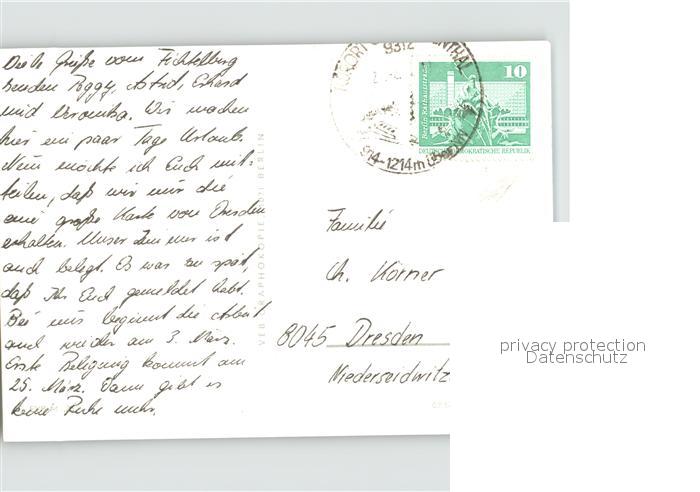 Viele Grüße vom Fichtelberg
senden Peggy, Astrid, Erhard
und Veronika. Wir machen
hier ein paar Tage Urlaub.
Nun möchte ich Euch mit-
teilen, daß wir nur die
eine große Karte von Dresden
erhalten. Unser Zimmer ist
auch belegt. Es war zu spät,
daß Ihr Euch gemeldet habt.
Bei uns beginnt die Arbeit
auch wieder am 3. März.
Erste Belegung kommt am
25. März. Dann gibt es
keine Ruhe mehr.
VEB BERLIN
9312
914-1214m
10
Berlin, Rathausstraße
DEUTSCHE DEMOKRATISCHE REPUBLIK
Familie
Ch. Körner
8045 Dresden
Niederseidwitz
privacy protection
Datenschutz